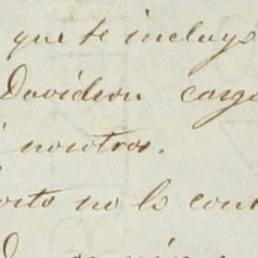 que te incluyo
Davidson carg
nosotros.
orto no lo cont